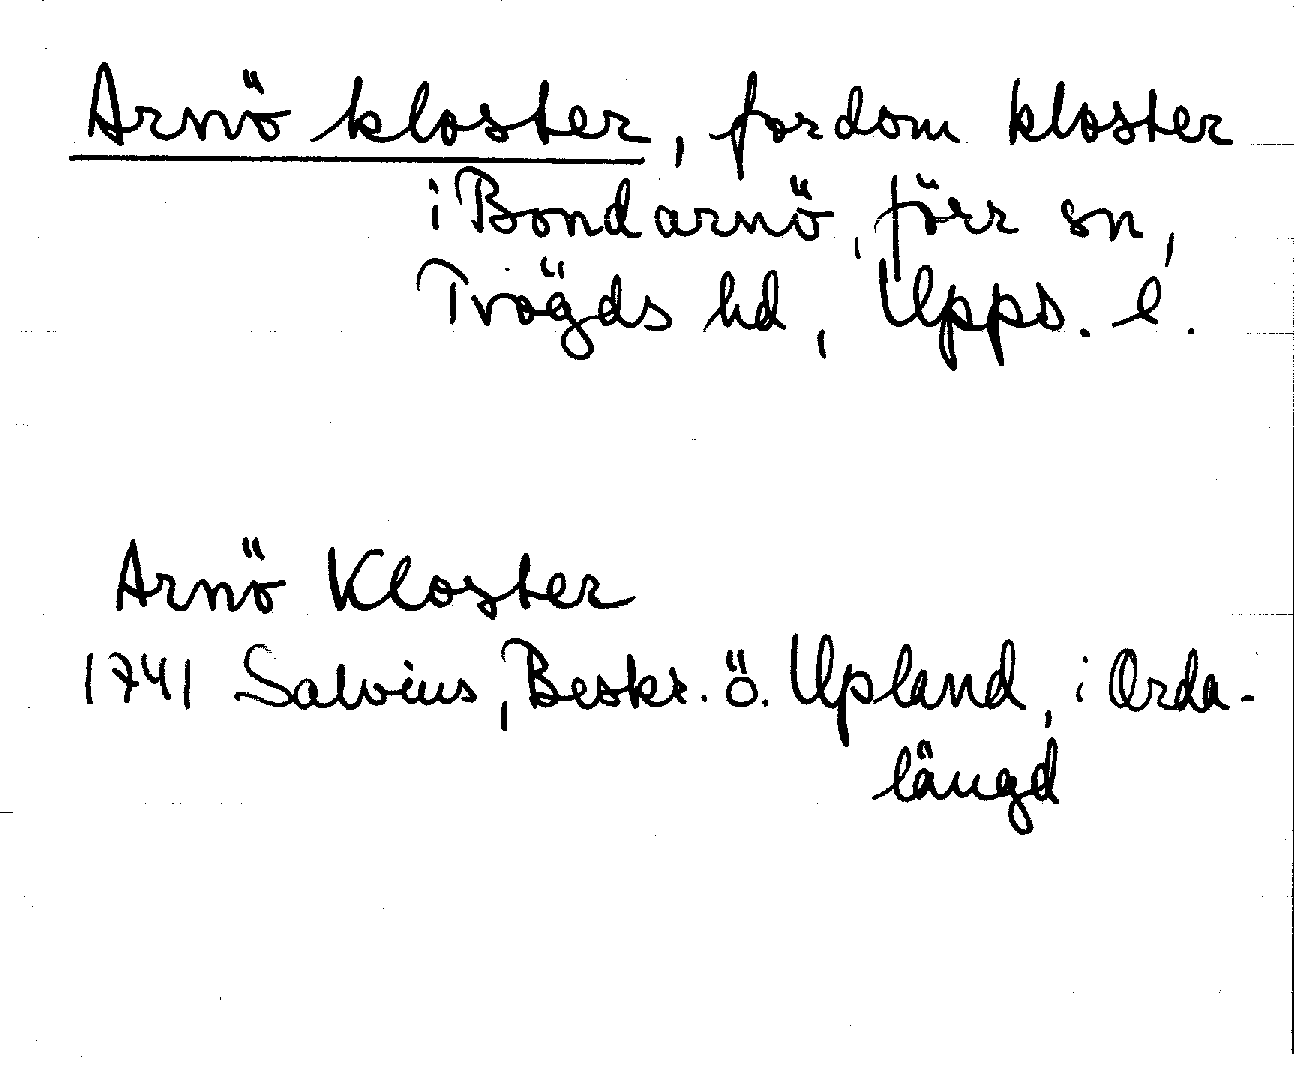 Arnö kloster, fordom kloster
i Bondarnö, förr sn,
Trögds hd, Upps. l.
Arnö Kloster
1741 Salvius, Beskr. ö. Upland, i Orda-
längd